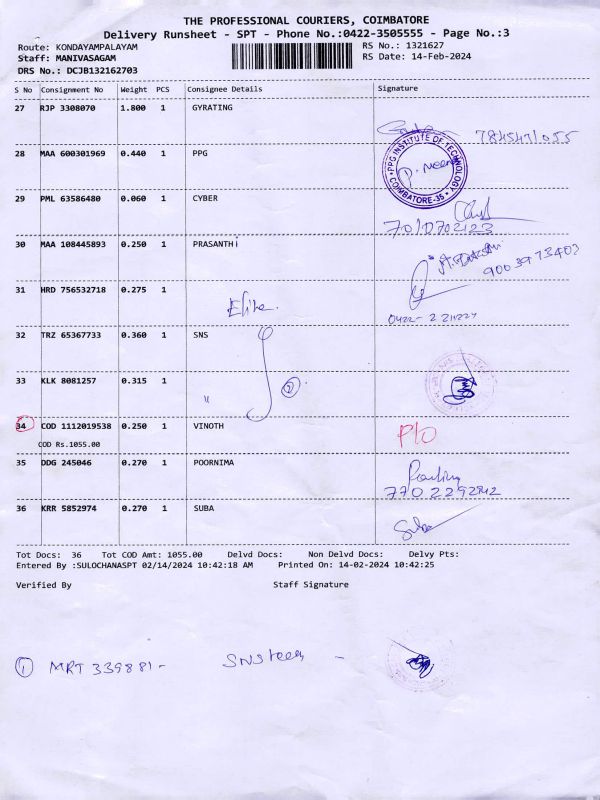 THE PROFESSIONAL COURIERS, COIMBATORE
Delivery Runsheet - SPT - Phone No.:0422-3505555 - Page No.:3
Route: KONDAYAMPALAYAM
RS No.: 1321627
Staff: MANIVASAGAM
RS Date: 14-Feb-2024
DRS No.: DCJB132162703
S No Consignment No Weight PCS Consignee Details Signature
27 RJP 3308070 1.800 1 GYRATING
28 MAA 600301969 0.440 1 PPG
PPG INSTITUTE OF TECHNOLOGY
COIMBATORE-35
29 PML 63586480 0.060 1 CYBER
7010702123
30 MAA 108445893 0.250 1 PRASANTHi
9003973403
31 HRD 756532718 0.275 1
Elite.
32 TRZ 65367733 0.360 1 SNS
33 KLK 8081257 0.315 1 "
2
34 COD 1112019538 0.250 1 VINOTH
P/O
COD Rs.1055.00
35 DDG 245046 0.270 1 POORNIMA
36 KRR 5852974 0.270 1 SUBA
Suba
Tot Docs: 36 Tot COD Amt: 1055.00 Delvd Docs: Non Delvd Docs: Delvy Pts:
Entered By :SULOCHANASPT 02/14/2024 10:42:18 AM Printed On: 14-02-2024 10:42:25
Verified By Staff Signature
1 MRT 339881 - SNS -